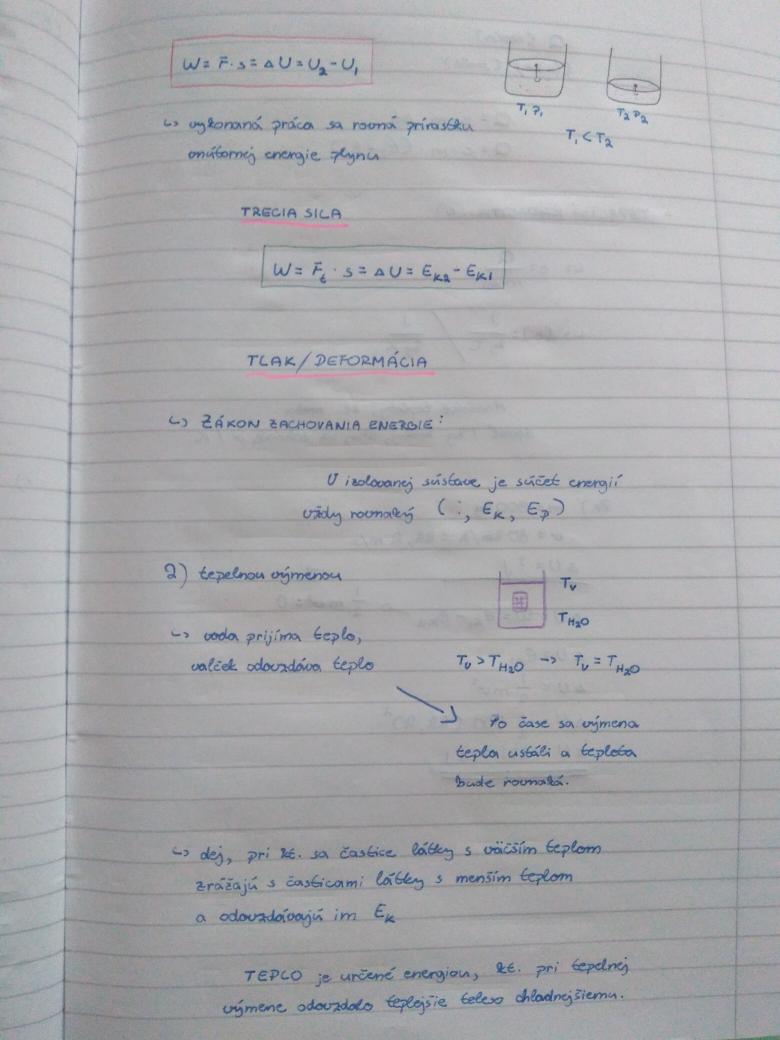 W = F̄ · s = Δ U = U₂ - U₁
T₁ P₁
T₂ P₂
T₁ < T₂
↳ vykonaná práca sa rovná prírastku
vnútornej energie plynu
TRECIA SILA
W = F̄ₜ · s = Δ U = Eₖ₂ - Eₖ₁
TLAK/DEFORMÁCIA
↳ ZÁKON ZACHOVANIA ENERGIE:
V izolovanej sústave je súčet energií
vždy rovnaký ( i, Eₖ, Eₚ )
2) tepelnou výmenou
Tᵥ
T_H₂O
↳ voda prijíma teplo,
valček odovzdáva teplo
Tᵥ > T_H₂O -> Tᵥ = T_H₂O
Po čase sa výmena
tepla ustáli a teplota
bude rovnaká.
↳ dej, pri kt. sa častice látky s väčším teplom
zrážajú s časticami látky s menším teplom
a odovzdávajú im Eₖ
TEPLO je určené energiou, kt. pri tepelnej
výmene odovzdalo teplejšie teleso chladnejšiemu.